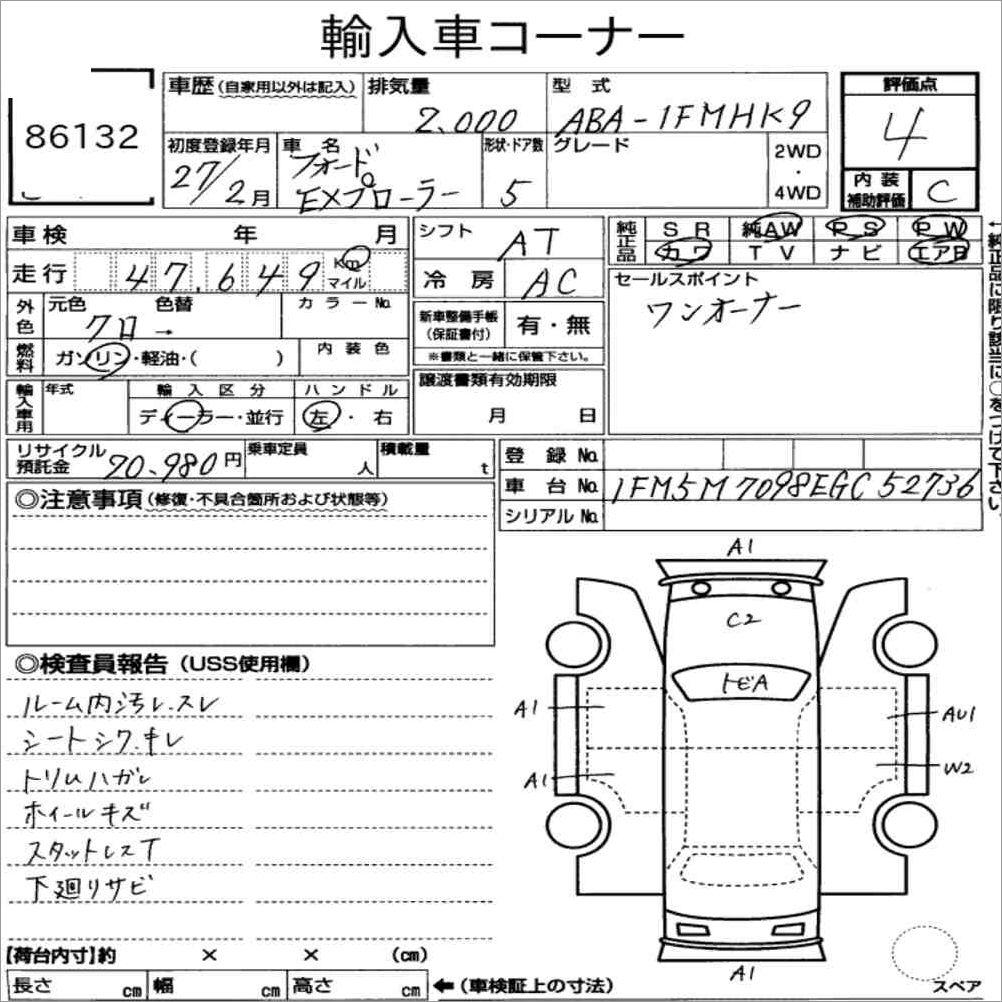 輸入車コーナー
86132
車歴(自家用以外は記入) 排気量 2,000 型式 ABA-1FMHK9
評価点 4
初度登録年月 27/2月 車名 フォード EXプローラー 形状・ドア数 5 グレード 2WD・4WD
内装補助評価 C
車検 年 月
走行 47,649 Km マイル
外色 元色 クロ 色替 → カラーNo.
燃料 ガソリン・軽油・( ) 内装色
輸入車用 年式 輸入区分 ディーラー・並行 ハンドル 左・右
シフト AT
冷房 AC
新車整備手帳(保証書付) 有・無
※書類と一緒に保管下さい。
譲渡書類有効期限
月 日
純正品 SR 純AW PS PW
カワ TV ナビ エアB
←純正品に限り該当に○をつけて下さい。
セールスポイント
ワンオーナー
リサイクル預託金 20,980円 乗車定員 人 積載量 t
登録No.
車台No. 1FM5M7098EGC52736
シリアルNo.
◎注意事項(修復・不具合箇所および状態等)
◎検査員報告(USS使用欄)
ルーム内汚レ.スレ
シートシワ.キレ
トリムハガレ
ホイールキズ
スタットレスT
下廻りサビ
A1
C2
トビA
A1
AU1
A1
W2
A1
スペア
【荷台内寸】約 × × (cm)
長さ cm 幅 cm 高さ cm ←(車検証上の寸法)